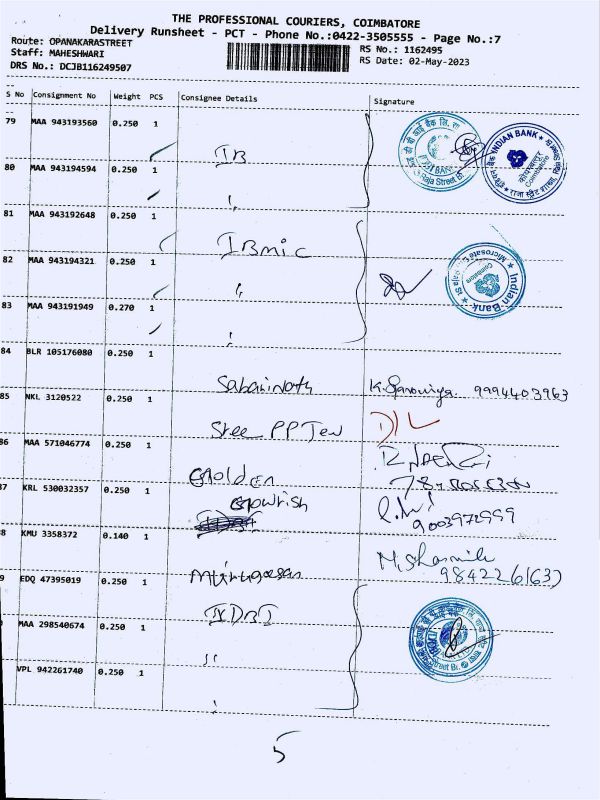 THE PROFESSIONAL COURIERS, COIMBATORE
Delivery Runsheet - PCT - Phone No.:0422-3505555 - Page No.:7
Route: OPANAKARASTREET
Staff: MAHESHWARI
DRS No.: DCJB116249507
RS No.: 1162495
RS Date: 02-May-2023
S No Consignment No Weight PCS Consignee Details Signature
79 MAA 943193560 0.250 1
IB
80 MAA 943194594 0.250 1
"
81 MAA 943192648 0.250 1
IBmic
82 MAA 943194321 0.250 1
"
83 MAA 943191949 0.270 1
"
84 BLR 105176080 0.250 1
Sabarinath 9994403963
85 NKL 3120522 0.250 1
Sree PP Jew
86 MAA 571046774 0.250 1
Golden
87 KRL 530032357 0.250 1
Gowrish
9003972999
88 KMU 3358372 0.140 1
Murugesan M. Sharmila
9842261632
9 EDQ 47395019 0.250 1
IDBI
MAA 298540674 0.250 1
"
VPL 942261740 0.250 1
"
5
INDIAN BANK
Coimbatore
Indian Bank
Microsate
Coimbatore